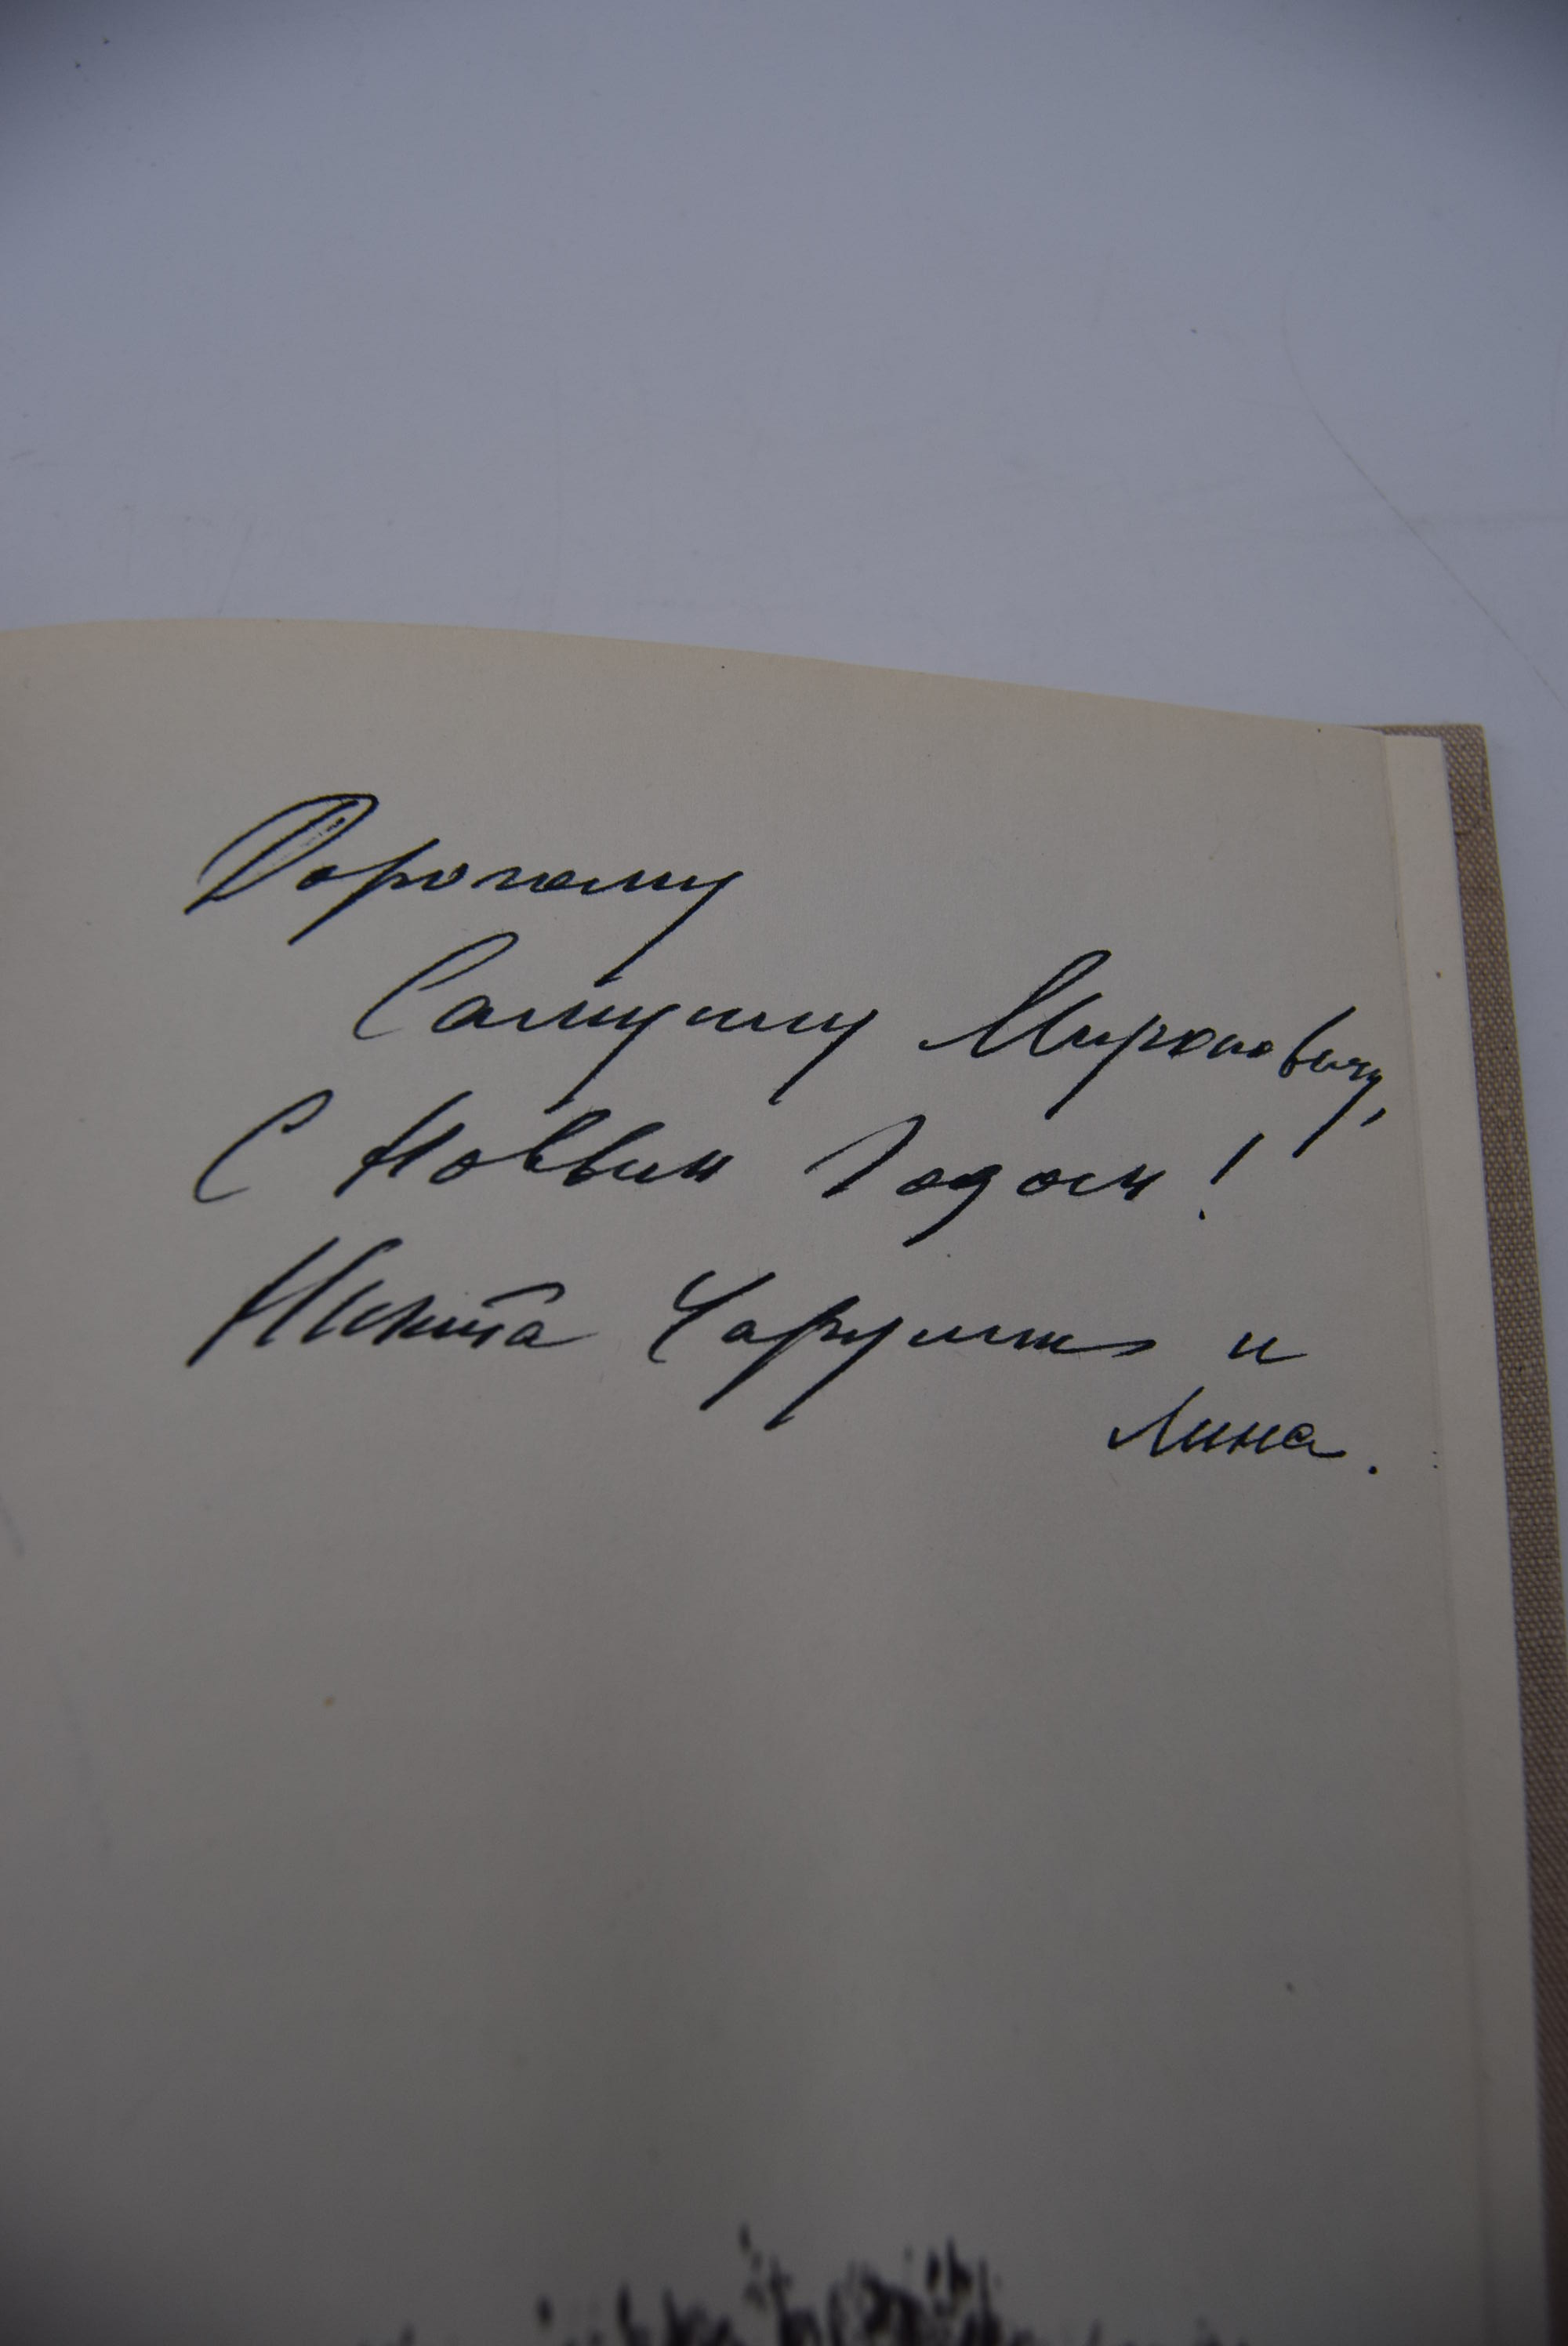 Дорогому
Самуилу Мироновичу,
С Новым Годом!
Никита Чарушин и
Лина.